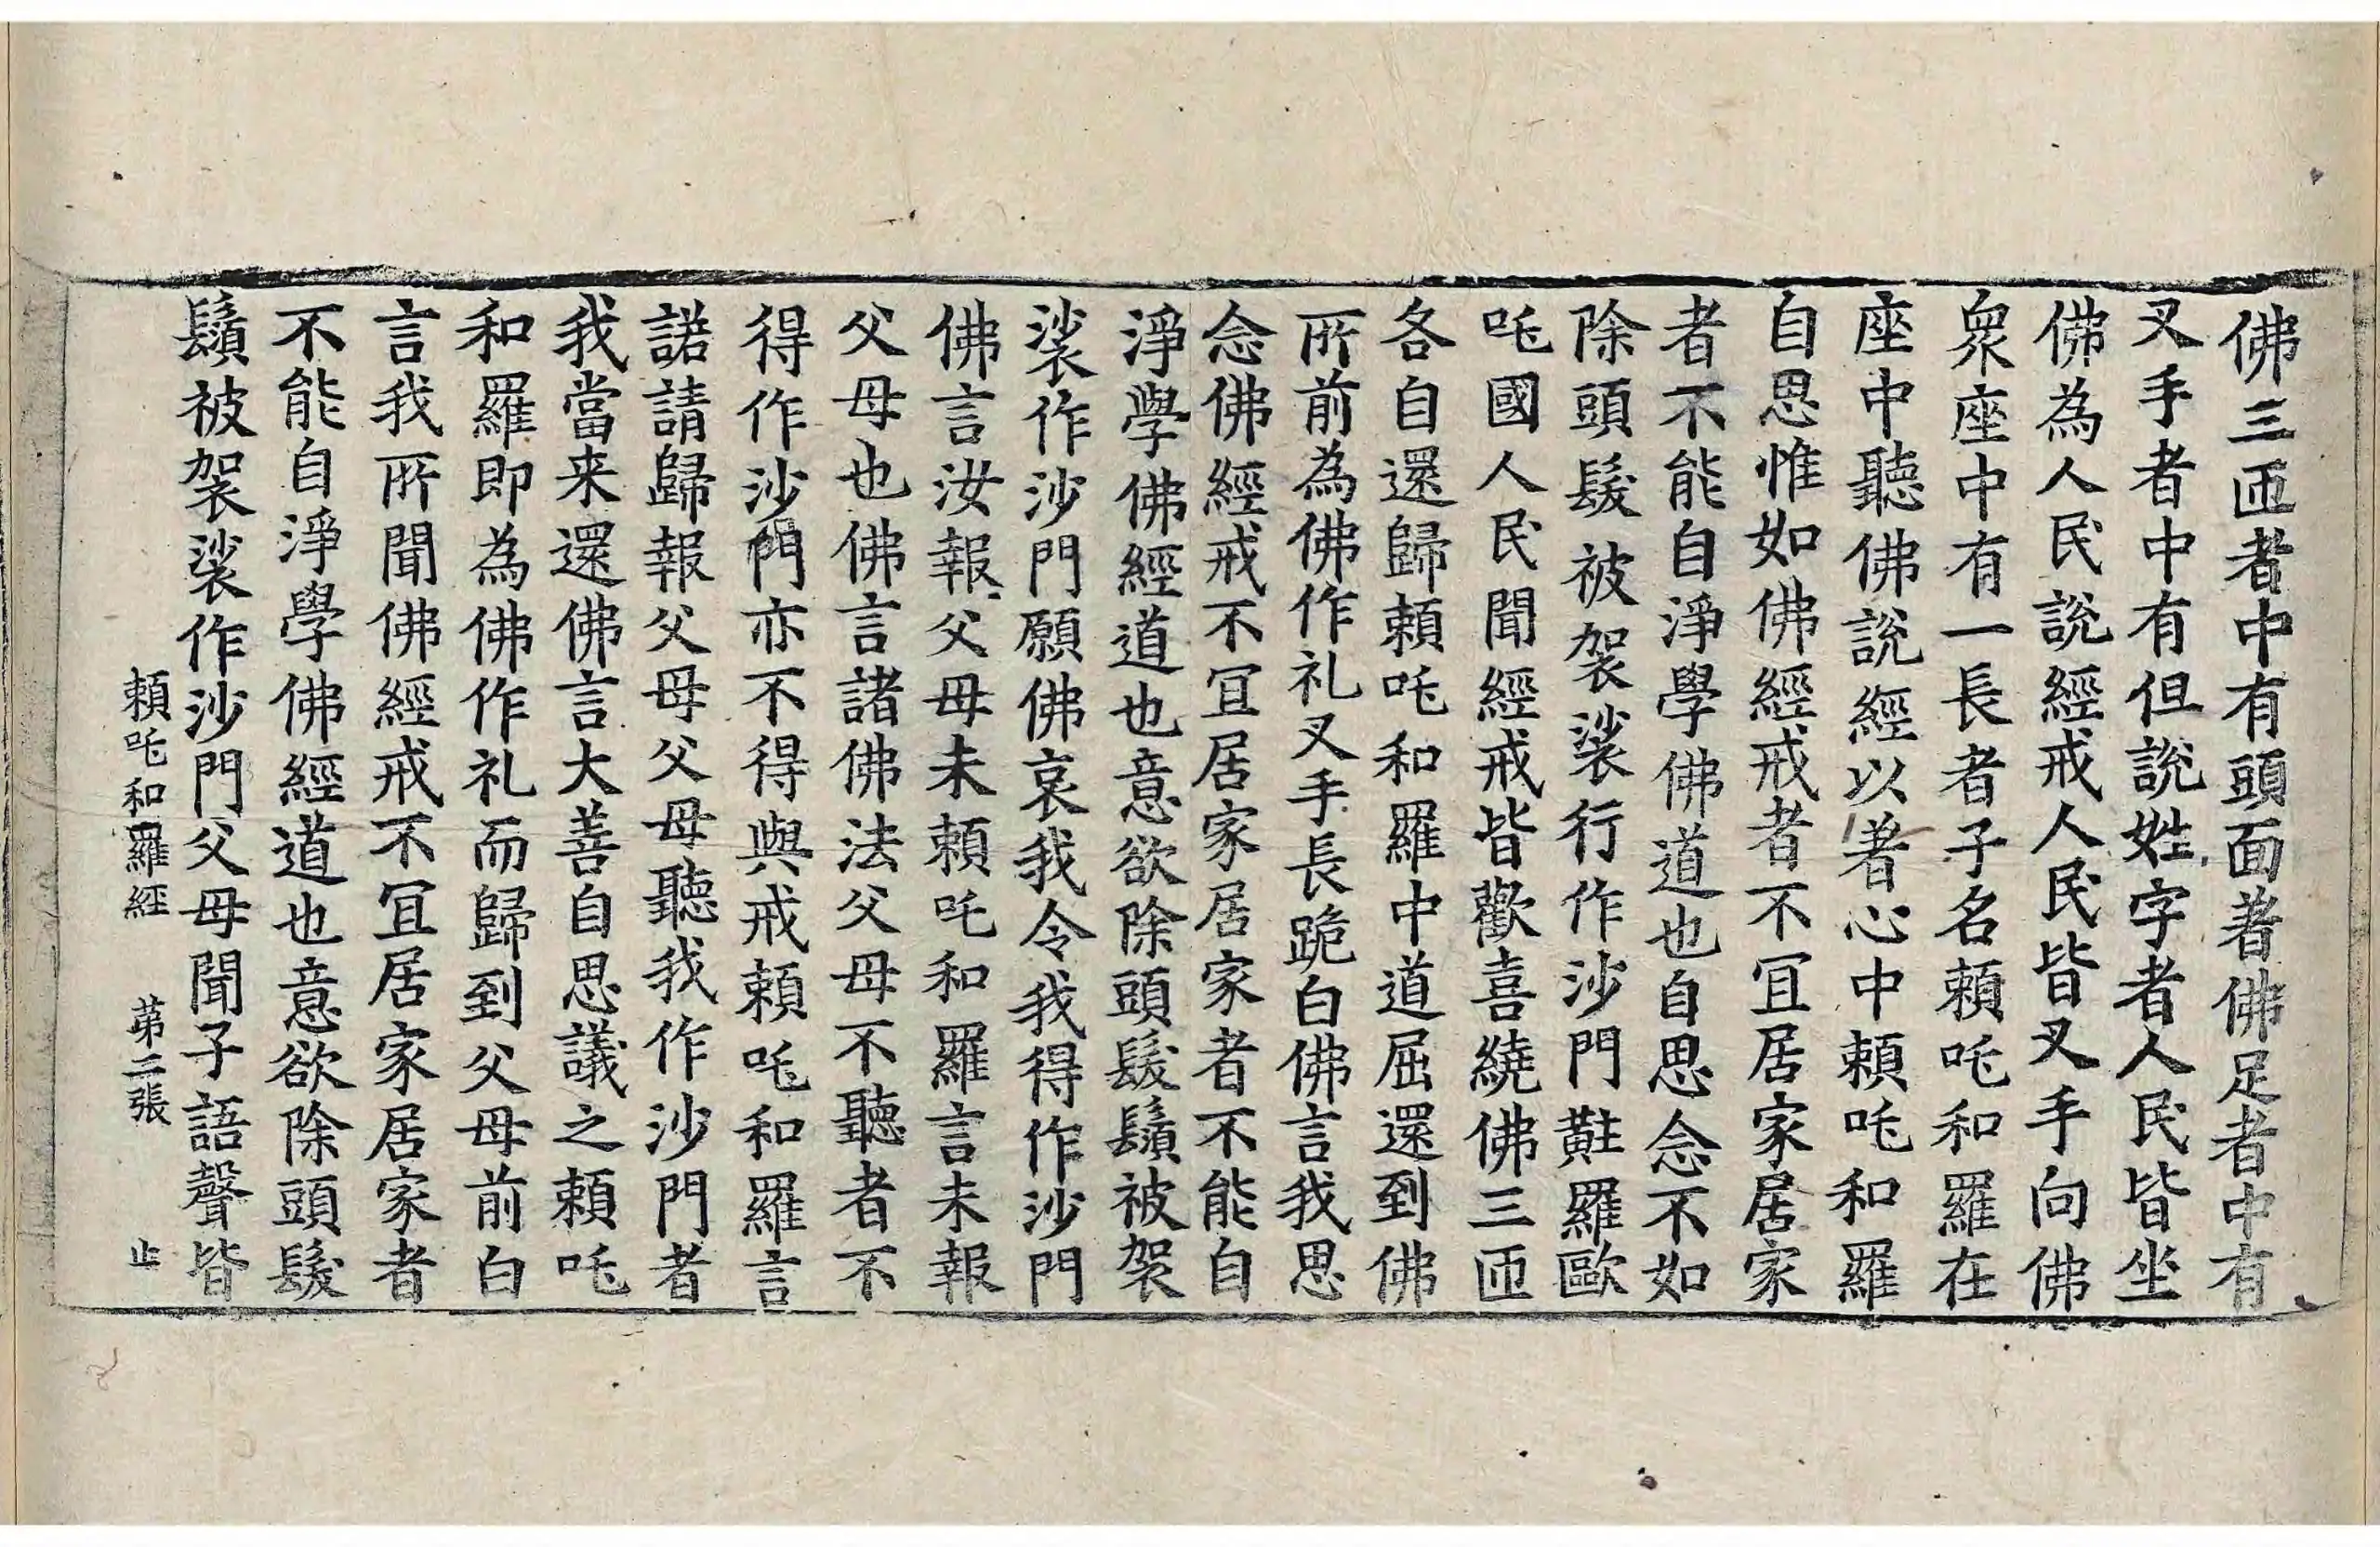 佛三匝者中有頭面著佛足者中有
叉手者中有但說姓字者人民皆坐
佛為人民說經戒人民皆叉手向佛
衆座中有一長者子名頼吒和羅在
座中聽佛說經以著心中頼吒和羅
自思惟如佛經戒者不冝居家居家
者不能自淨學佛道也自思念不如
除頭髮被袈裟行作沙門黈羅歐
吒國人民聞經戒皆歡喜繞佛三匝
各自還歸頼吒和羅中道屈還到佛
所前為佛作礼叉手長跪白佛言我思
念佛經戒不冝居家居家者不能自
淨學佛經道也意欲除頭髮鬚被袈
裟作沙門願佛哀我令我得作沙門
佛言汝報父母未頼吒和羅言未報
父母也佛言諸佛法父母不聽者不
得作沙門亦不得與戒頼吒和羅言
諾請歸報父母父母聽我作沙門者
我當来還佛言大善自思議之頼吒
和羅即為佛作礼而歸到父母前白
言我所聞佛經戒不冝居家居家者
不能自淨學佛經道也意欲除頭髮
鬚被袈裟作沙門父母聞子語聲皆
頼吒和羅經 苐二張 止